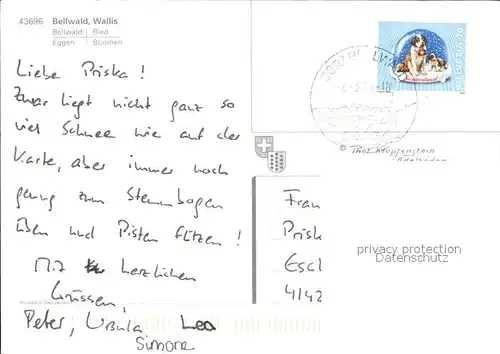 43696 Bellwald, Wallis
Bellwald | Ried
Eggen | Bodmen
Liebe Priska !
Zwar liegt nicht ganz so
viel Schnee wie auf der
Karte, aber immer noch
genug zum Stemmbogen
üben und Pisten flitzen !
Mit herzlichen
Grüssen,
Peter, Ursula Lea
Simone
HELVETIA
© Phot. Klopfenstein
Adelboden
Fran
Prisk
Esch
4142
privacy protection
Datenschutz